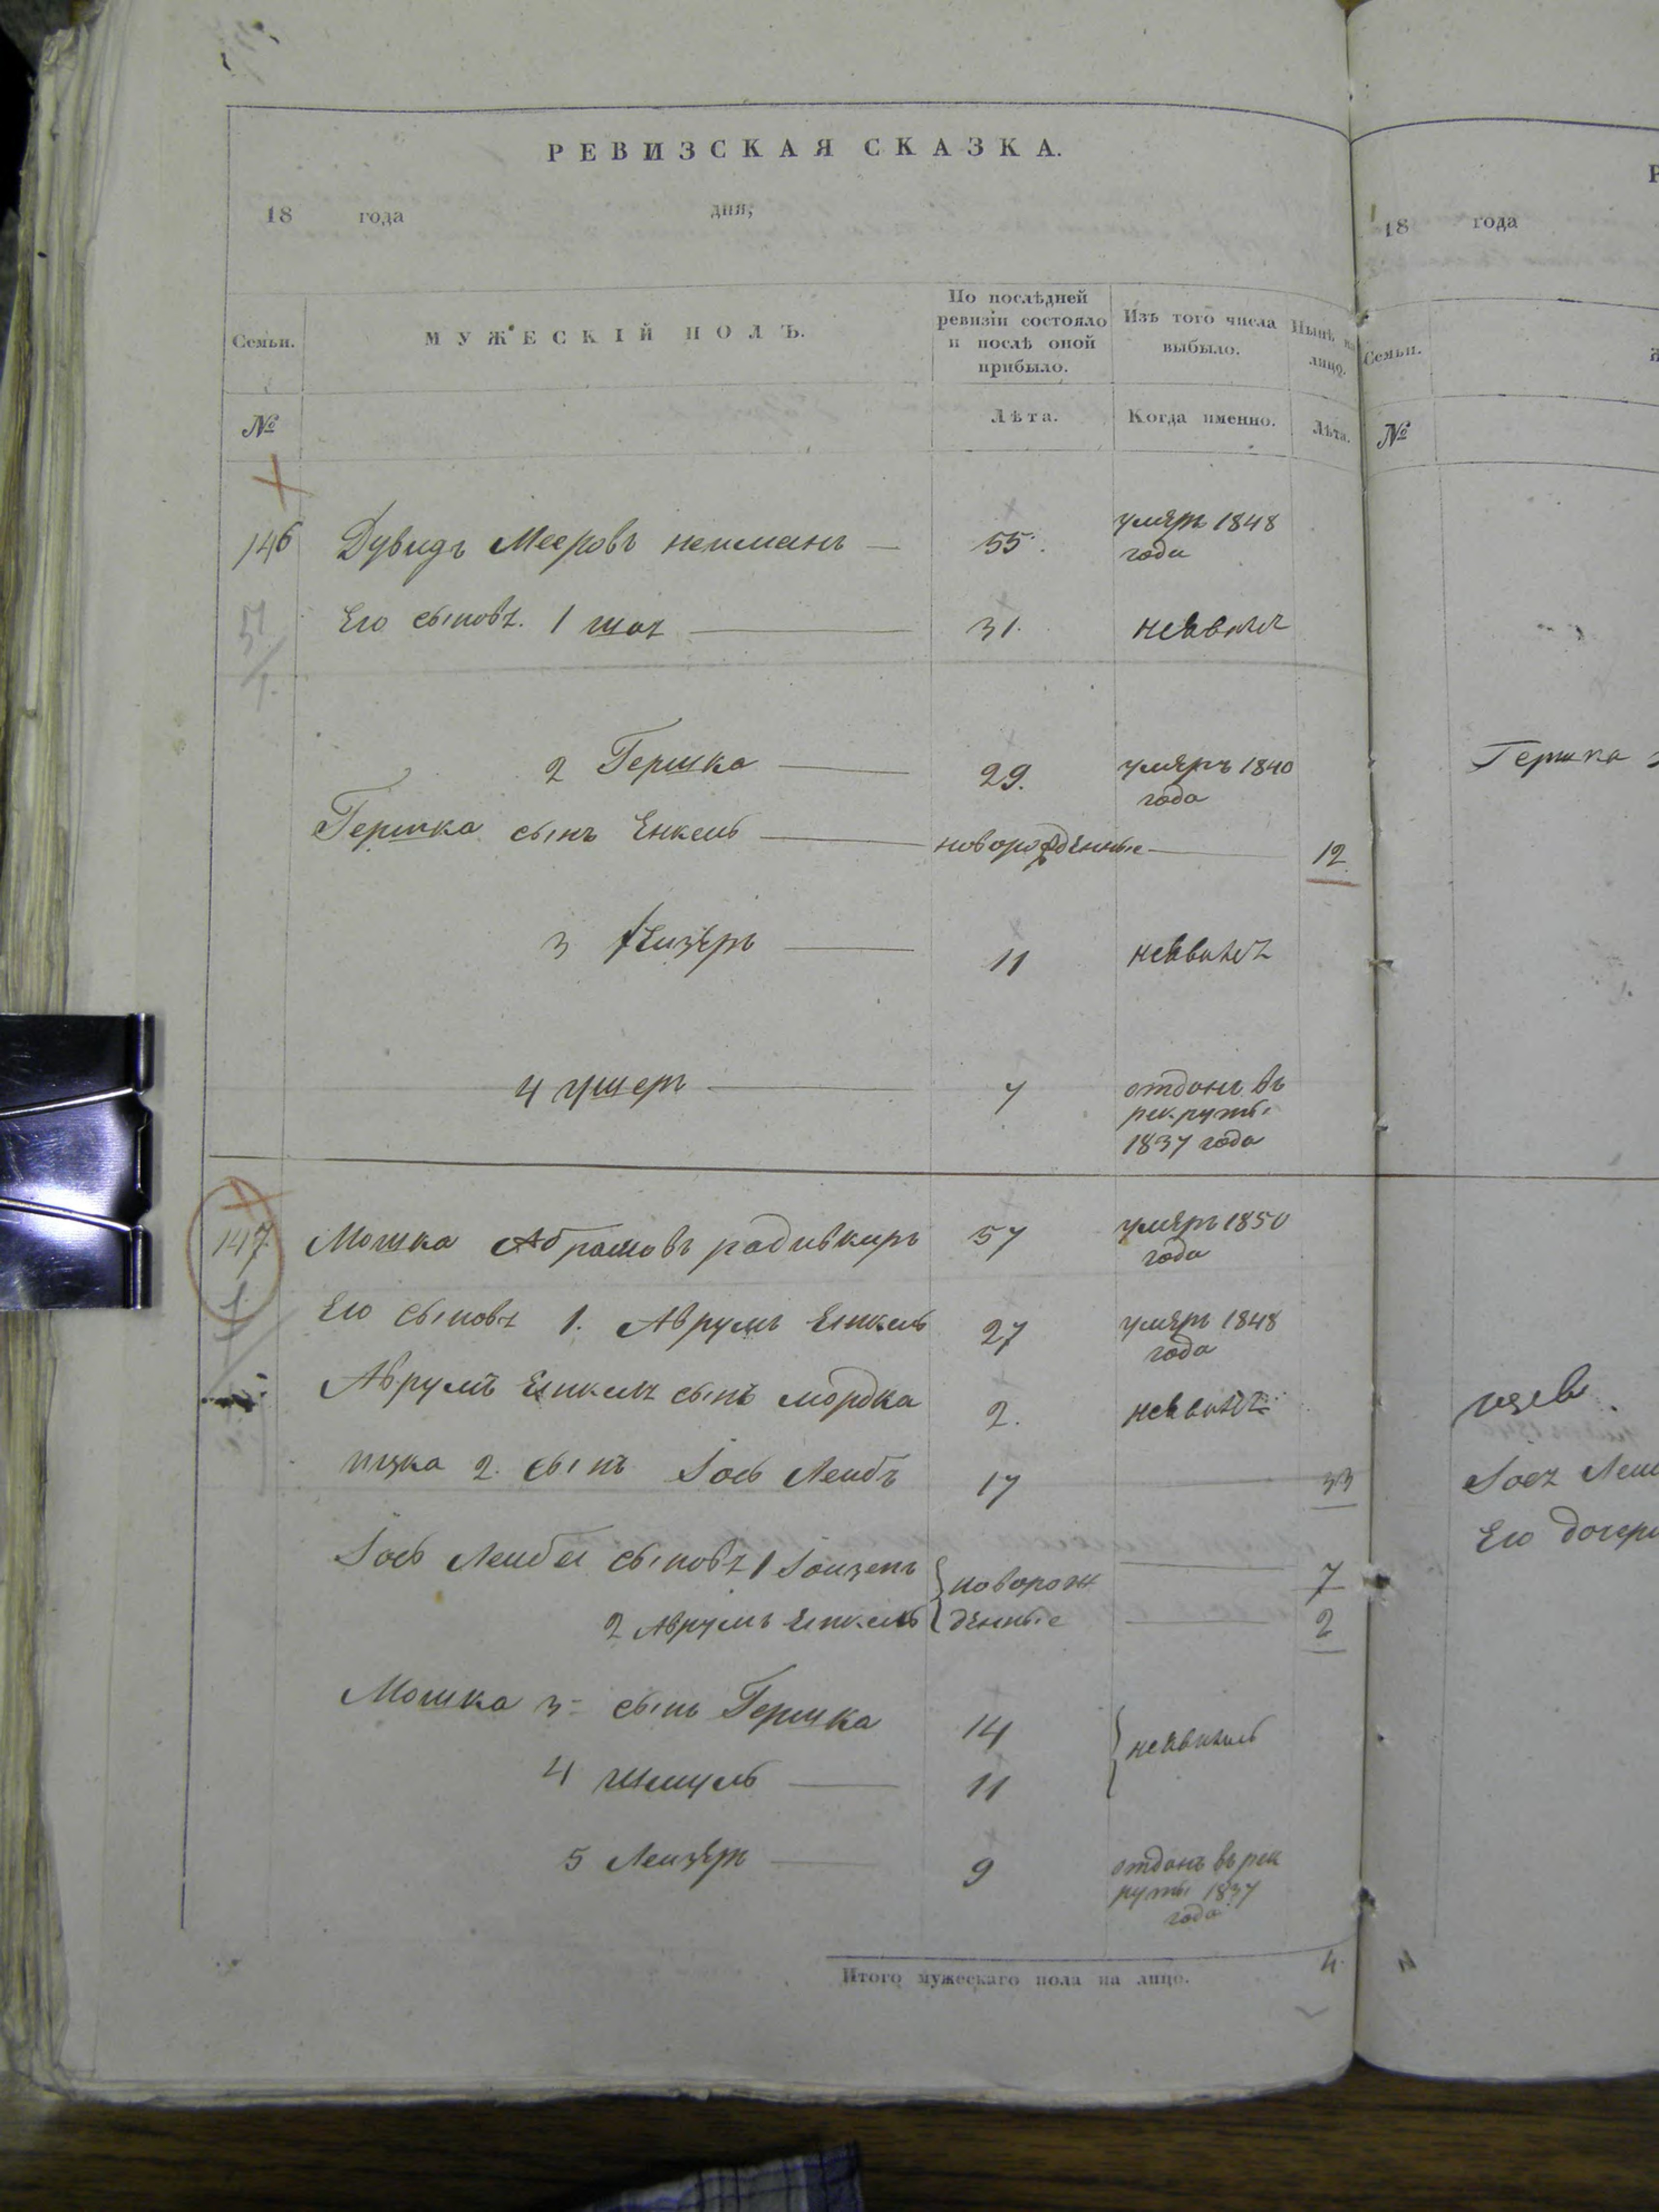 РЕВИЗСКАЯ СКАЗКА.
18 года дня;
Семьи.
МУЖЕСКІЙ ПОЛЪ.
По послѣдней ревизіи состояло и послѣ оной прибыло.
Изъ того числа выбыло.
Нынѣ на лицо.
№
Лѣта.
Когда именно.
Лѣта.
146 Дувидъ Мееровъ неиманъ — 55. умяръ 1848
года
Его сыновя. 1 31. неявился
2 Гершка — 29. умяръ 1840
года
Гершка сынъ Енкель — новорожденные — 12
3 Лейзѣръ — 11 неявился
4 Ушеръ — 7 отданъ въ
рекруты
1837 года
147 Мошка Абрамовъ радивкиръ 57 умяръ 1850
года
Его сыновя 1. Аврумъ Енкель 27 умяръ 1848
года
Аврумъ Енкеля сынъ мордка 2. неявился
2. сынъ Іось Лейбъ 17 33
Іось Лейбы сыновя 1 новорож 7
2 Аврумъ Енкель денные 2
Мошка 3 сынъ Гершка 14 неявились
4 Шмуль — 11
5 Лейзѣръ — 9 отданъ въ рек
руты 1837
года
Итого мужескаго пола на лицо. 4
18 года
Семьи.
№
Гершка
Іося
Его дочери